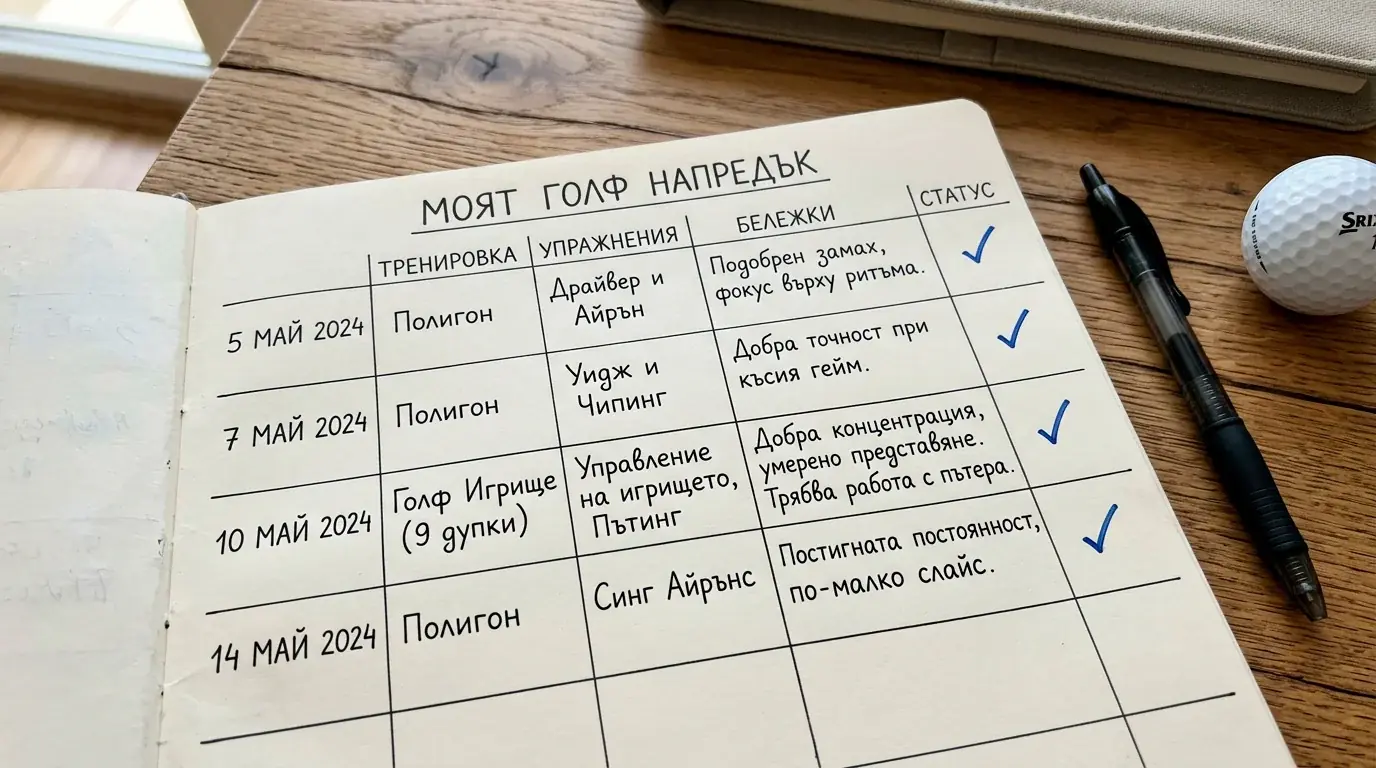 МОЯТ ГОЛФ НАПРЕДЪК
ТРЕНИРОВКА УПРАЖНЕНИЯ БЕЛЕЖКИ СТАТУС
5 МАЙ 2024
Полигон
Драйвер и
Айрън
Подобрен замах,
фокус върху ритъма.
✓
7 МАЙ 2024
Полигон
Уидж и
Чипинг
Добра точност при
късия гейм.
✓
10 МАЙ 2024
Голф Игрище
(9 дупки)
Управление
на игрището,
Пътинг
Добра концентрация,
умерено представяне.
Трябва работа с пътера.
✓
14 МАЙ 2024
Полигон
Синг Айрънс
Постигната постоянност,
по-малко слайс.
✓